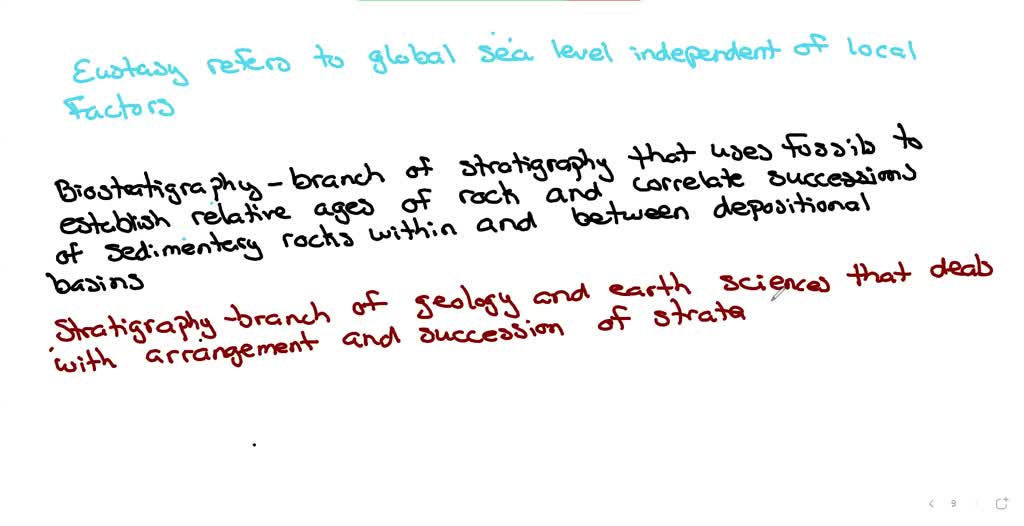 Eustasy refers to global sea level independent of local
Factors
Biostratigraphy - branch of stratigraphy that uses fossils to
establish relative ages of rock and correlate successions
of sedimentary rocks within and between depositional
basins
Stratigraphy - branch of geology and earth sciences that deals
with arrangement and succession of strata
9